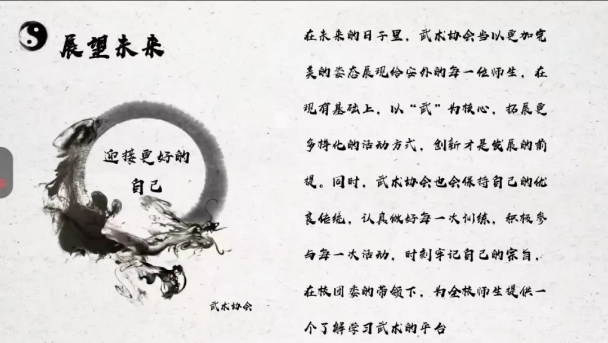 展望未来
迎接更好的
自己
武术协会
在未来的日子里，武术协会当以更加完
美的姿态展现给安外的每一位师生，在
现有基础上，以“武”为核心，拓展更
多样化的活动方式，创新才是发展的前
提。同时，武术协会也会保持自己的优
良传统，认真做好每一次训练，积极参
与每一次活动，时刻牢记自己的宗旨，
在校团委的带领下，为全校师生提供一
个了解学习武术的平台